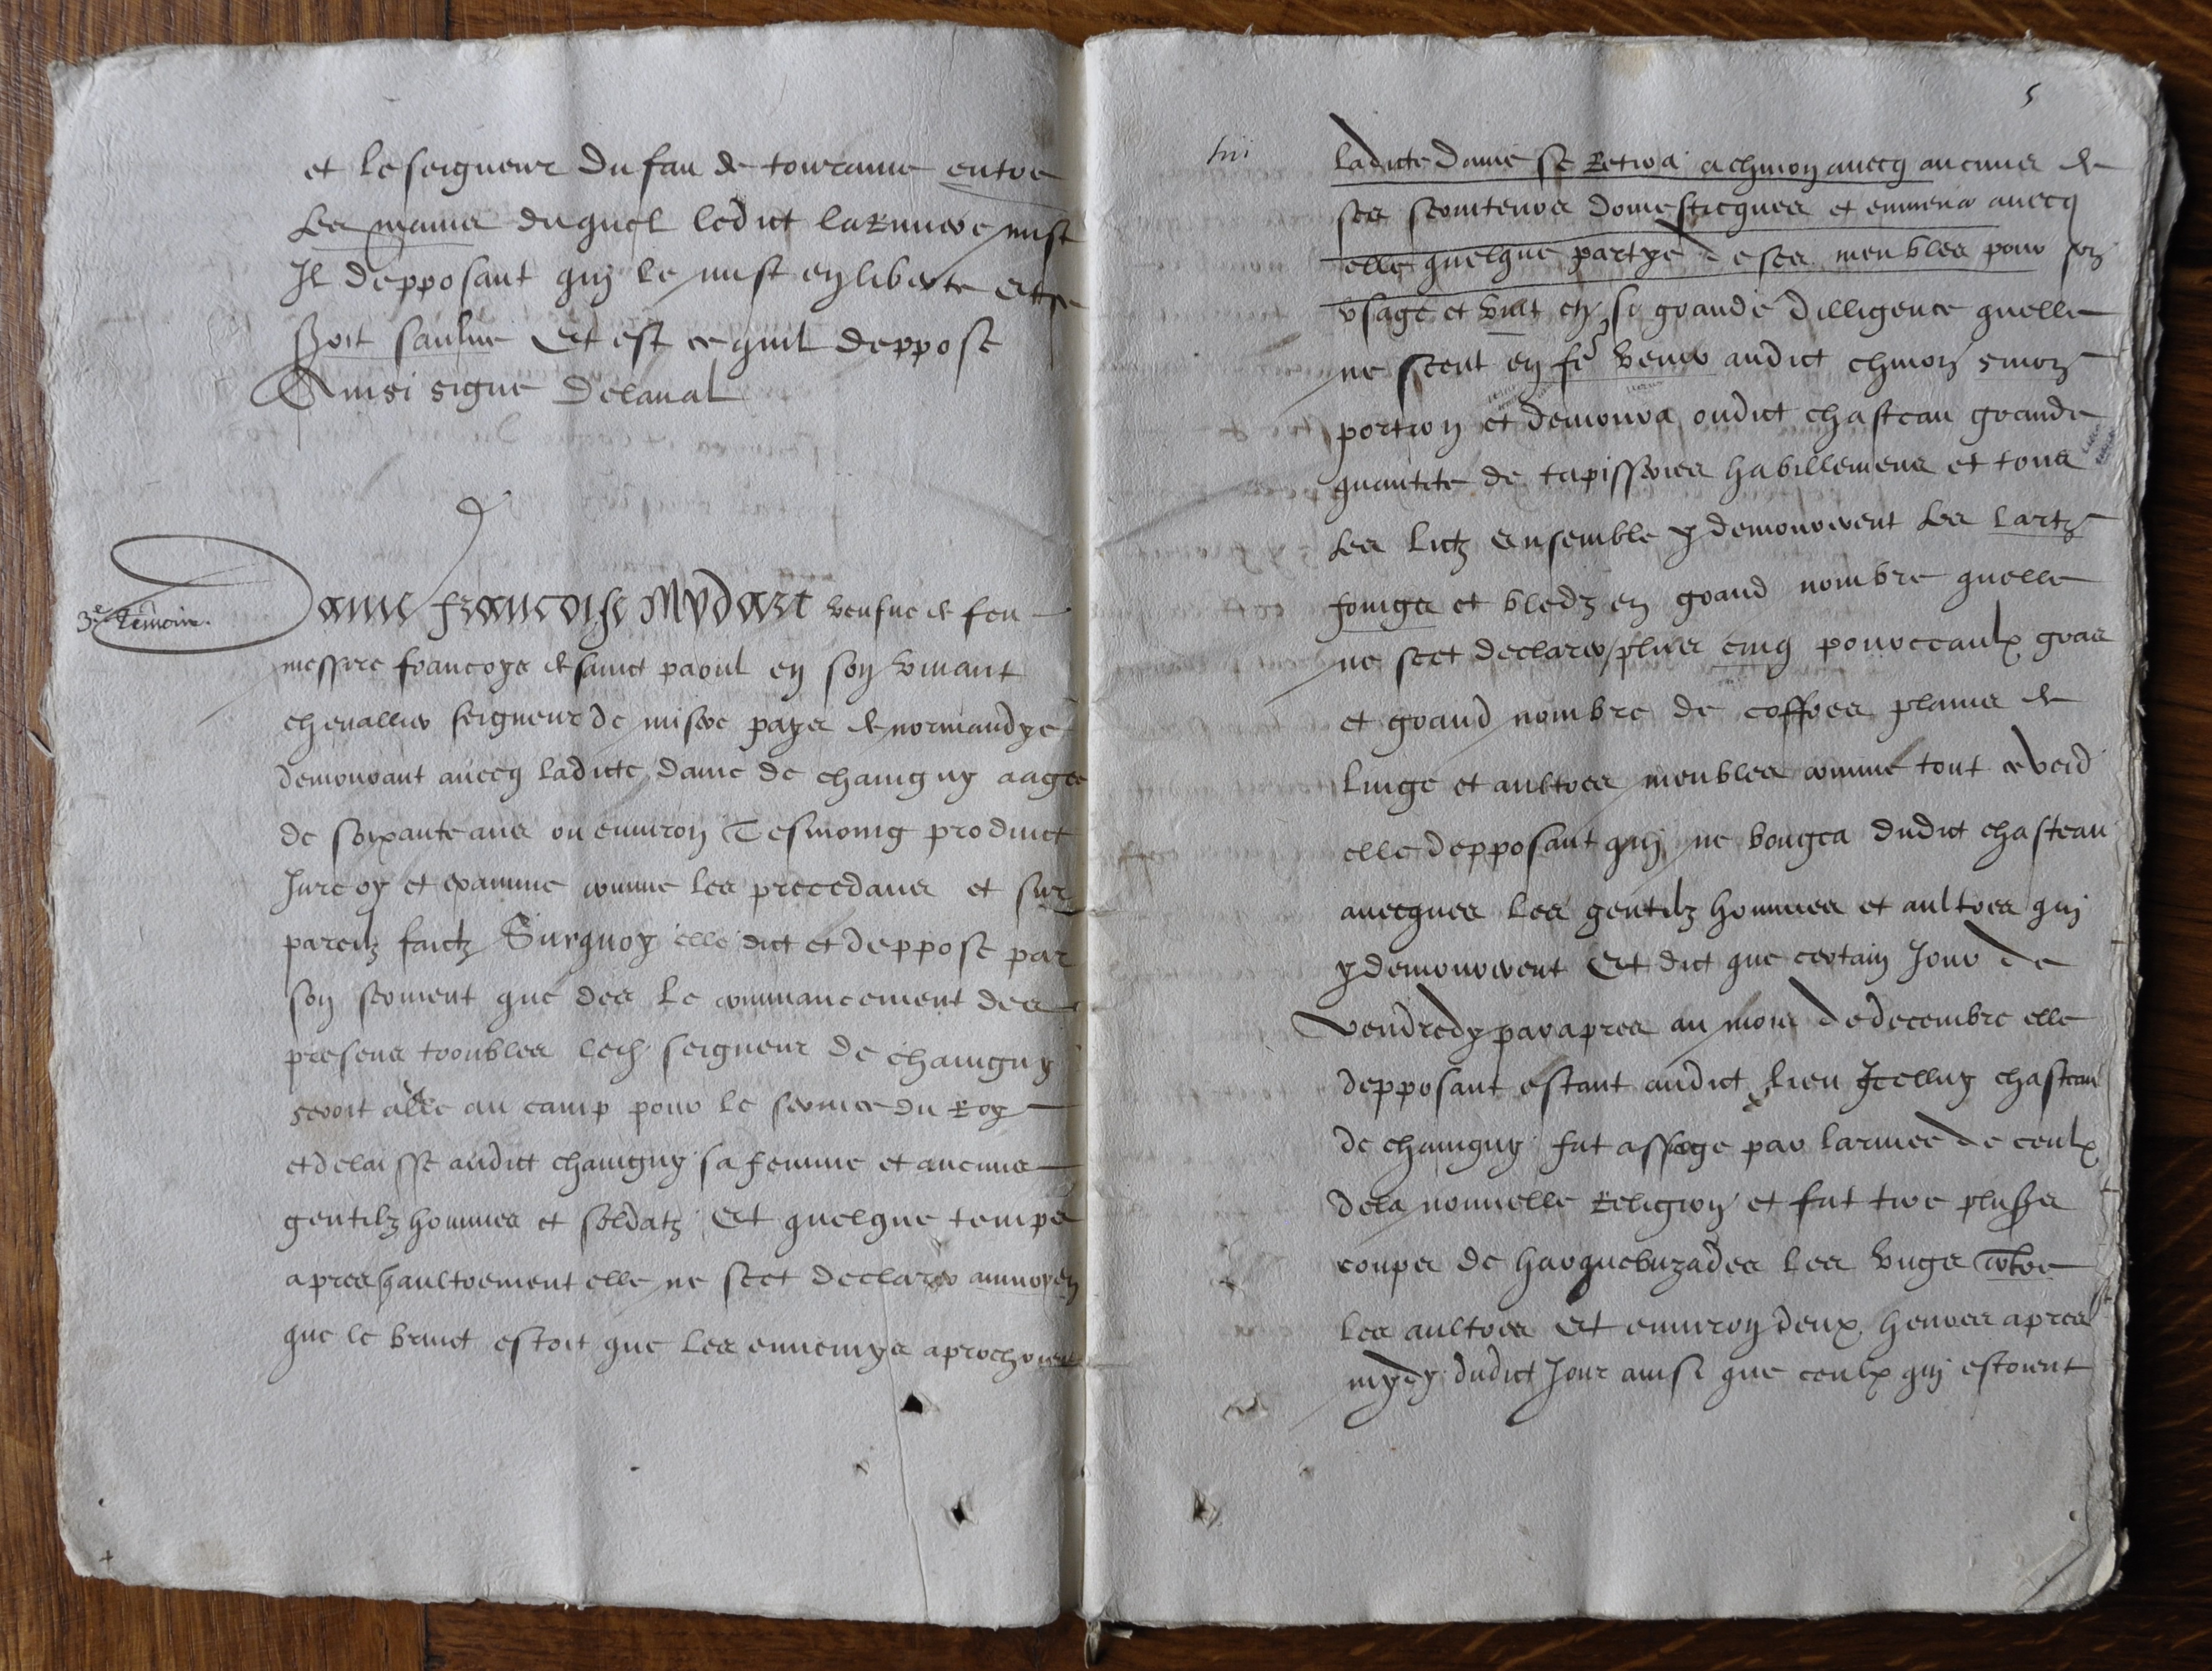 et le seigneur du fau de touraine entre
les mains duquel ledict lariviere mist
Il depposant quy le mist en liberte et se
soit saulve Et est ce quil deppose
Ainsi signe Delaval
3e Témoin.
Dame francoise Mydart veufue de feu
messire francoys de sainct paoul en son vivant
chevallier seigneur de misere pays de normandye
demourant avecq ladicte dame de chavigny aagee
de soixante ans ou environ Tesmoing produict
Jure oy et examine comme les precedans et sur
pareilz faictz Surquoy elle dict et deppose par
son serment que des le commancement des
presens troubles led seigneur de chavigny
seroit alle au camp pour le service du Roy
et delaisse audict chavigny sa femme et aucuns
gentilz hommes et soldatz Et quelque temps
apres aultrement elle ne scet declarer
que le bruict estoit que les ennemys aprochoient
5
ladicte dame se Retira a chinon avecq aucuns de
ses serviteurs domesticques et emmena avecq
elle quelque partye de ses meubles pour son
usage et en si grande dilligence quelle
ne sceut en fe venir audict chinon sinon
portion et demoura oudict chasteau grande
quantite de tapisseries habillemens et tous
les lictz ensemble y demourerent les lartz
et bledz en grand nombre quelle
ne scet declarer plus cinq pourceaulx gras
et grand nombre de coffres plains de
linge et aultres meubles comme tout ce veid
elle depposant quy ne bougea dudict chasteau
avecques les gentilz hommes et aultres quy
y demourerent Et dict que certain Jour de
vendredy par apres au mois de decembre elle
depposant estant audict lieu Icelluy chasteau
de chavigny fut assiege par larmee de ceulx
de la nouvelle Religion et fut tire plusrs
coups de harquebuzades les ungs contre
les aultres Et environ deux heures apres
mydy dudict Jour ainsi que ceulx quy estoient